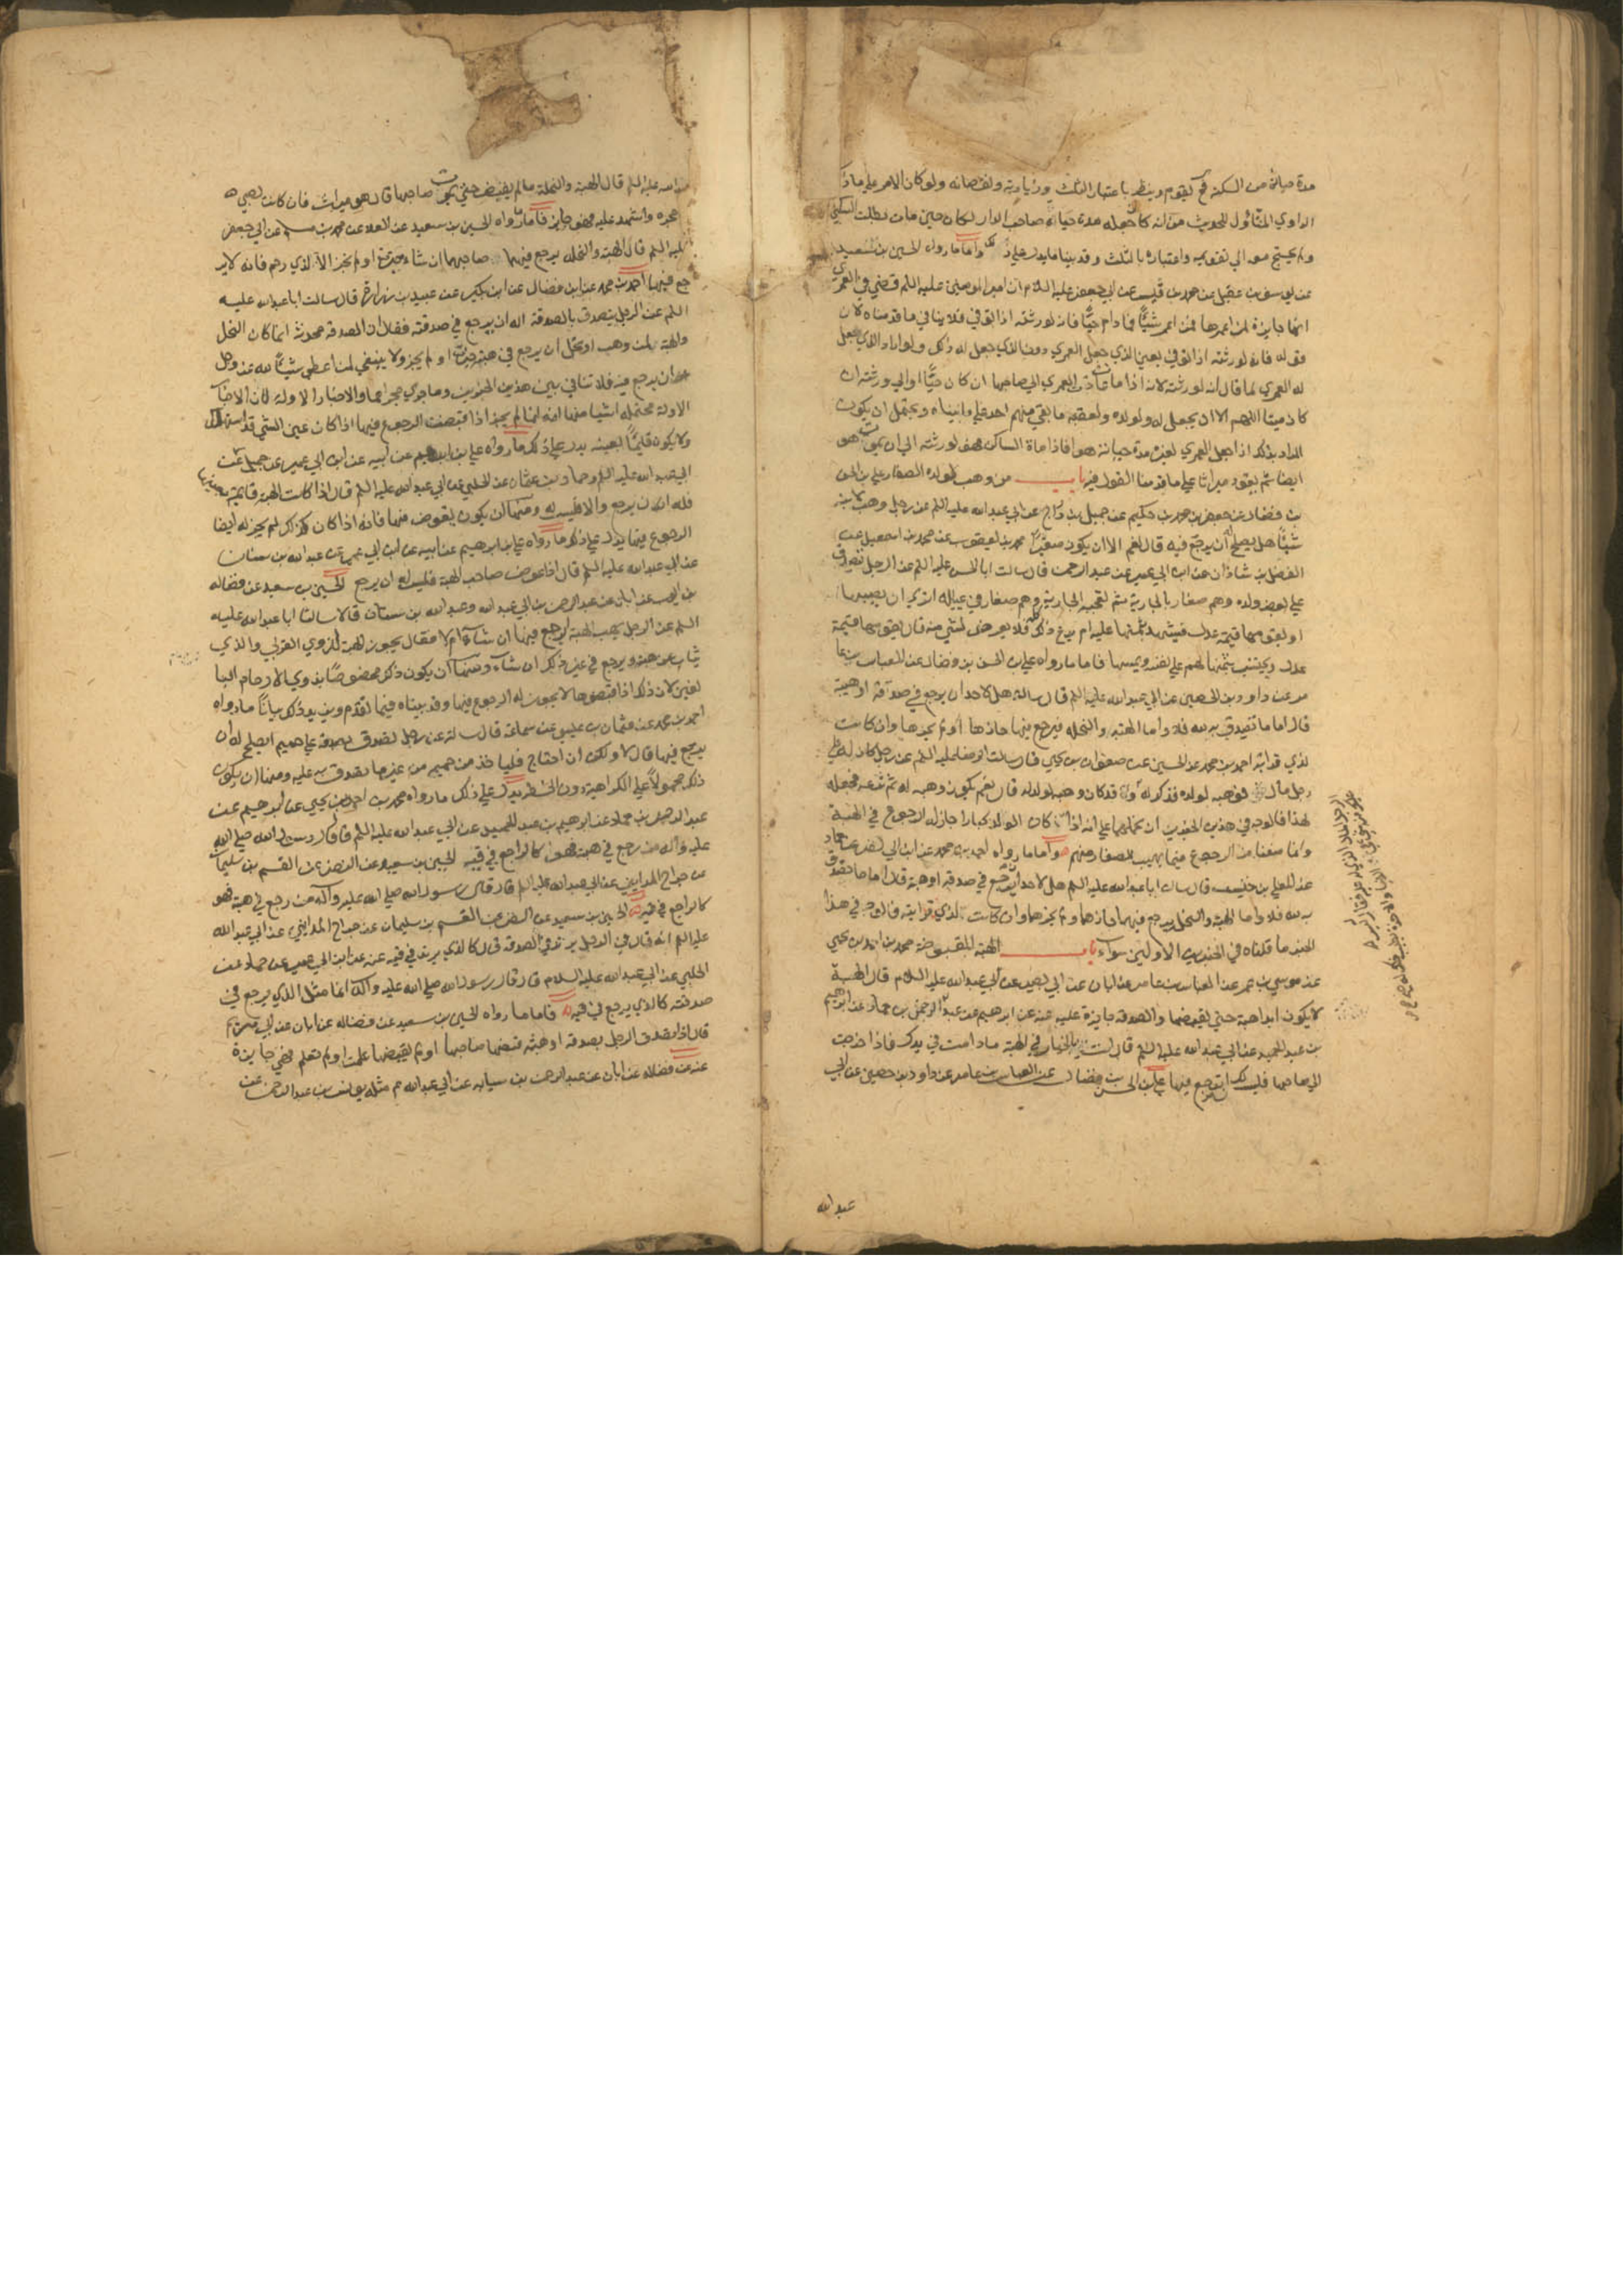 مدة حياته من السكنى فح يقوم وينظر باعتبار الثلث وزيادته ونقصانه ولو كان الامر على ما ذكره
الراوي المتأول للحديث من انه كان جعله مدة حياة صاحب الدار لكان حين مات بطلت السكنى
ولم يحتج معه الى تقويمه واعتباره بالثلث وقد بينا ما يدل على ذلك واما ما رواه الحسين بن سعيد
عن يوسف بن عقيل عن محمد بن قيس عن ابي جعفر عليه السلام ان امير المومنين عليه السلم قضى في العمرى
انها جايزة لمن اعمرها فمن اعمر شيئا ما دام حيا فانه لورثته اذا توفي فلا ينافي ما قدمناه لان
قوله فانه لورثته اذا توفي يعني الذي جعل العمرى دون الذي جعل له ذلك ولو اراد الذي جعل
له العمرى لما قال انه لورثته لانه اذا مات عادت العمرى الى صاحبها ان كان حيا او الى ورثته ان
كان ميتا اللهم الا ان يجعل له ولولده ولعقبه ما بقي منهم احد على ما بيناه ويحتمل ان يكون
المراد بذلك اذا جعل العمرى لغيره مدة حياته هو فاذا مات الساكن فهو لورثته الى ان يموت هو
ايضا ثم يعود ميراثا على ما قدمنا القول فيه باب من وهب لولده الصغار علي بن الحسن
بن فضال عن جعفر بن محمد بن حكيم عن جميل بن دراج عن ابي عبد الله عليه السلم عن رجل وهب لابنه
شيئا هل يصلح ان يرجع فيه قال نعم الا ان يكون صغيرا محمد بن يعقوب عن محمد بن اسمعيل عن
الفضل بن شاذان عن ابن ابي عمير عن عبد الرحمن قال سالت ابا الحسن عليه السلم عن الرجل تصدق
على بعض ولده وهم صغار بالجارية ثم تعجبه الجارية وهم صغار في عياله اترى ان يصيبها
او يقومها قيمة عدل فيشهد بثمنها عليه ام يدع ذلك كله فلا يعرض لشئ منه قال يقومها قيمة
عدل ويحتسب بثمنها لهم على نفسه ويمسها فاما ما رواه علي بن الحسن بن فضال عن العباس بن عا
مر عن داود بن الحصين عن ابي عبد الله عليه السلم قال سالته هل لاحد ان يرجع في صدقته او هبته
قال اما ما تصدق به لله فلا واما الهبة والنحلة فيرجع فيها حازها او لم يحزها وان كانت
لذي قرابة احمد بن محمد عن الحسين عن صفوان بن يحيى قال سالت الرضا عليه السلم عن رجل كان له على
رجل مال فوهبه لولده فذكر له قد كان وهبه لولد له قال نعم يكون وهبه له ثم نزعه فجعله
لهذا فالوجه في هذين الخبرين ان نحملهما على انه اذا كان الولد كبارا جاز له الرجوع في الهبة
وانما منعنا من الرجوع فيما يهب للصغار منهم واما ما رواه احمد بن محمد عن ابن ابي نصر عن حماد
عن المعلى بن خنيس قال سالت ابا عبد الله عليه السلم هل لاحد ان يرجع في صدقة او هبة قال اما ما تصدق
به لله فلا واما الهبة والنحل يرجع فيهما حازهما او لم يحزهما وان كانت لذي قرابة فالوجه في هذا
الخبر ما قلناه في الخبرين الاولين سواء باب الهبة المقبوضة محمد بن احمد بن يحيى
عن موسى بن عمر عن العباس بن عامر عن ابان عن ابي بصير عن ابي عبد الله عليه السلام قال الهبة
لا يكون ابدا هبة حتى يقبضها والصدقة جايزة عليه عنه عن ابرهيم عن عبد الرحمن بن حماد عن ابرهيم
بن عبد الحميد عن ابي عبد الله عليه السلم قال انت بالخيار في الهبة ما دامت في يدك فاذا خرجت
الى صاحبها فليس لك ان ترجع فيها علي بن الحسن بن فضال عن العباس بن عامر عن داود بن حصين عن ابي
عبد الله
عبد الله عليه السلم قال الهبة والنحلة ما لم يقبض حتى يموت صاحبها قال هو ميراث فان كانت لصبي في
حجره واشهد عليه فهو جايز فاما ما رواه الحسين بن سعيد عن العلا عن محمد بن مسلم عن ابي جعفر
عليه السلم قال الهبة والنحلة يرجع فيها صاحبها ان شاء حيزت او لم تحز الا لذي رحم فانه لا ير
جع فيها احمد بن محمد عن ابن فضال عن ابن بكير عن عبيد بن زرارة قال سالت ابا عبد الله عليه
السلم عن الرجل يتصدق بالصدقة اله ان يرجع في صدقته فقال ان الصدقة محدثة انما كان النحل
والهبة ولمن وهب او نحل ان يرجع في هبته حيز او لم يحز ولا ينبغي لمن اعطى شيئا لله عز وجل
ان يرجع فيه فلا تنافي بين هذين الخبرين وما جرى مجراهما والاخبار الاولة لان الاخبار
الاولة محتملة اشيا منها انه انما لم يجز اذا قبضت الرجوع فيها اذا كان عين الشئ قد استهلك
ولا يكون قايما بعينه يدل على ذلك ما رواه علي بن ابرهيم عن ابيه عن ابن ابي عمير عن جميل عن
ابي عبد الله عليه السلم وحماد بن عثمان عن الحلبي عن ابي عبد الله عليه السلم قال اذا كانت الهبة قايمة بعينها
فله ان يرجع والا فليس له ومنها ان يكون يعوض منها فانه اذا كان كذلك لم يجز له ايضا
الرجوع فيها يدل على ذلك ما رواه علي بن ابرهيم عن ابيه عن ابن ابي عمير عن عبد الله بن سنان
عن ابي عبد الله عليه السلم قال اذا عوض صاحب الهبة فليس له ان يرجع الحسين بن سعيد عن فضالة
بن ايوب عن ابان عن عبد الرحمن بن ابي عبد الله وعبد الله بن سنان قالا سالنا ابا عبد الله عليه
السلم عن الرجل يهب الهبة ايرجع فيها ان شاء ام لا فقال يجوز الهبة لذوي القرابى والذي
يثاب من هبته ويرجع في غير ذلك ان شاء ومنها ان يكون ذلك مخصوصا بذوي الارحام البا
لغين لان ذلك اذا قبضوها لا يجوز له الرجوع فيها وقد بيناه فيما تقدم ويزيد ذلك بيانا ما رواه
احمد بن محمد عن عثمان بن عيسى عن سماعة قال سالته عن رجل تصدق بصدقة على حميم ايصلح له ان
يرجع فيها قال لا ولكن ان احتاج فلياخذ من حميمه من غير ما تصدق به عليه ومنها ان يكون
ذلك محمولا على الكراهية دون الحظر يدل على ذلك ما رواه محمد بن احمد بن يحيى عن ابرهيم عن
عبد الرحمن بن حماد عن ابرهيم بن عبد الحميد عن ابي عبد الله عليه السلم قال قال رسول الله صلى الله
عليه وآله من رجع في هبته فهو كالراجع في قيئه الحسين بن سعيد عن النضر عن القسم بن سليمان
عن جراح المدايني عن ابي عبد الله عليه السلم قال قال رسول الله صلى الله عليه وآله من رجع في هبته فهو
كالراجع في قيئه الحسين بن سعيد عن النضر عن القسم بن سليمان عن جراح المدايني عن ابي عبد الله
عليه السلم انه قال في الرجل يرتد في الصدقة قال كالذي يرتد في قيئه عنه عن ابن ابي عمير عن حماد عن
الحلبي عن ابي عبد الله عليه السلام قال قال رسول الله صلى الله عليه وآله انما مثل الذي يرجع في
صدقته كالذي يرجع في قيئه فاما ما رواه الحسين بن سعيد عن فضالة عن ابان عن ابي مريم
قال اذا تصدق الرجل بصدقة او هبة قبضها صاحبها او لم يقبضها علمت او لم تعلم فهي جايزة
عنه عن فضالة عن ابان عن عبد الرحمن بن سيابة عن ابي عبد الله ع م مثله يونس بن عبد الرحمن عن